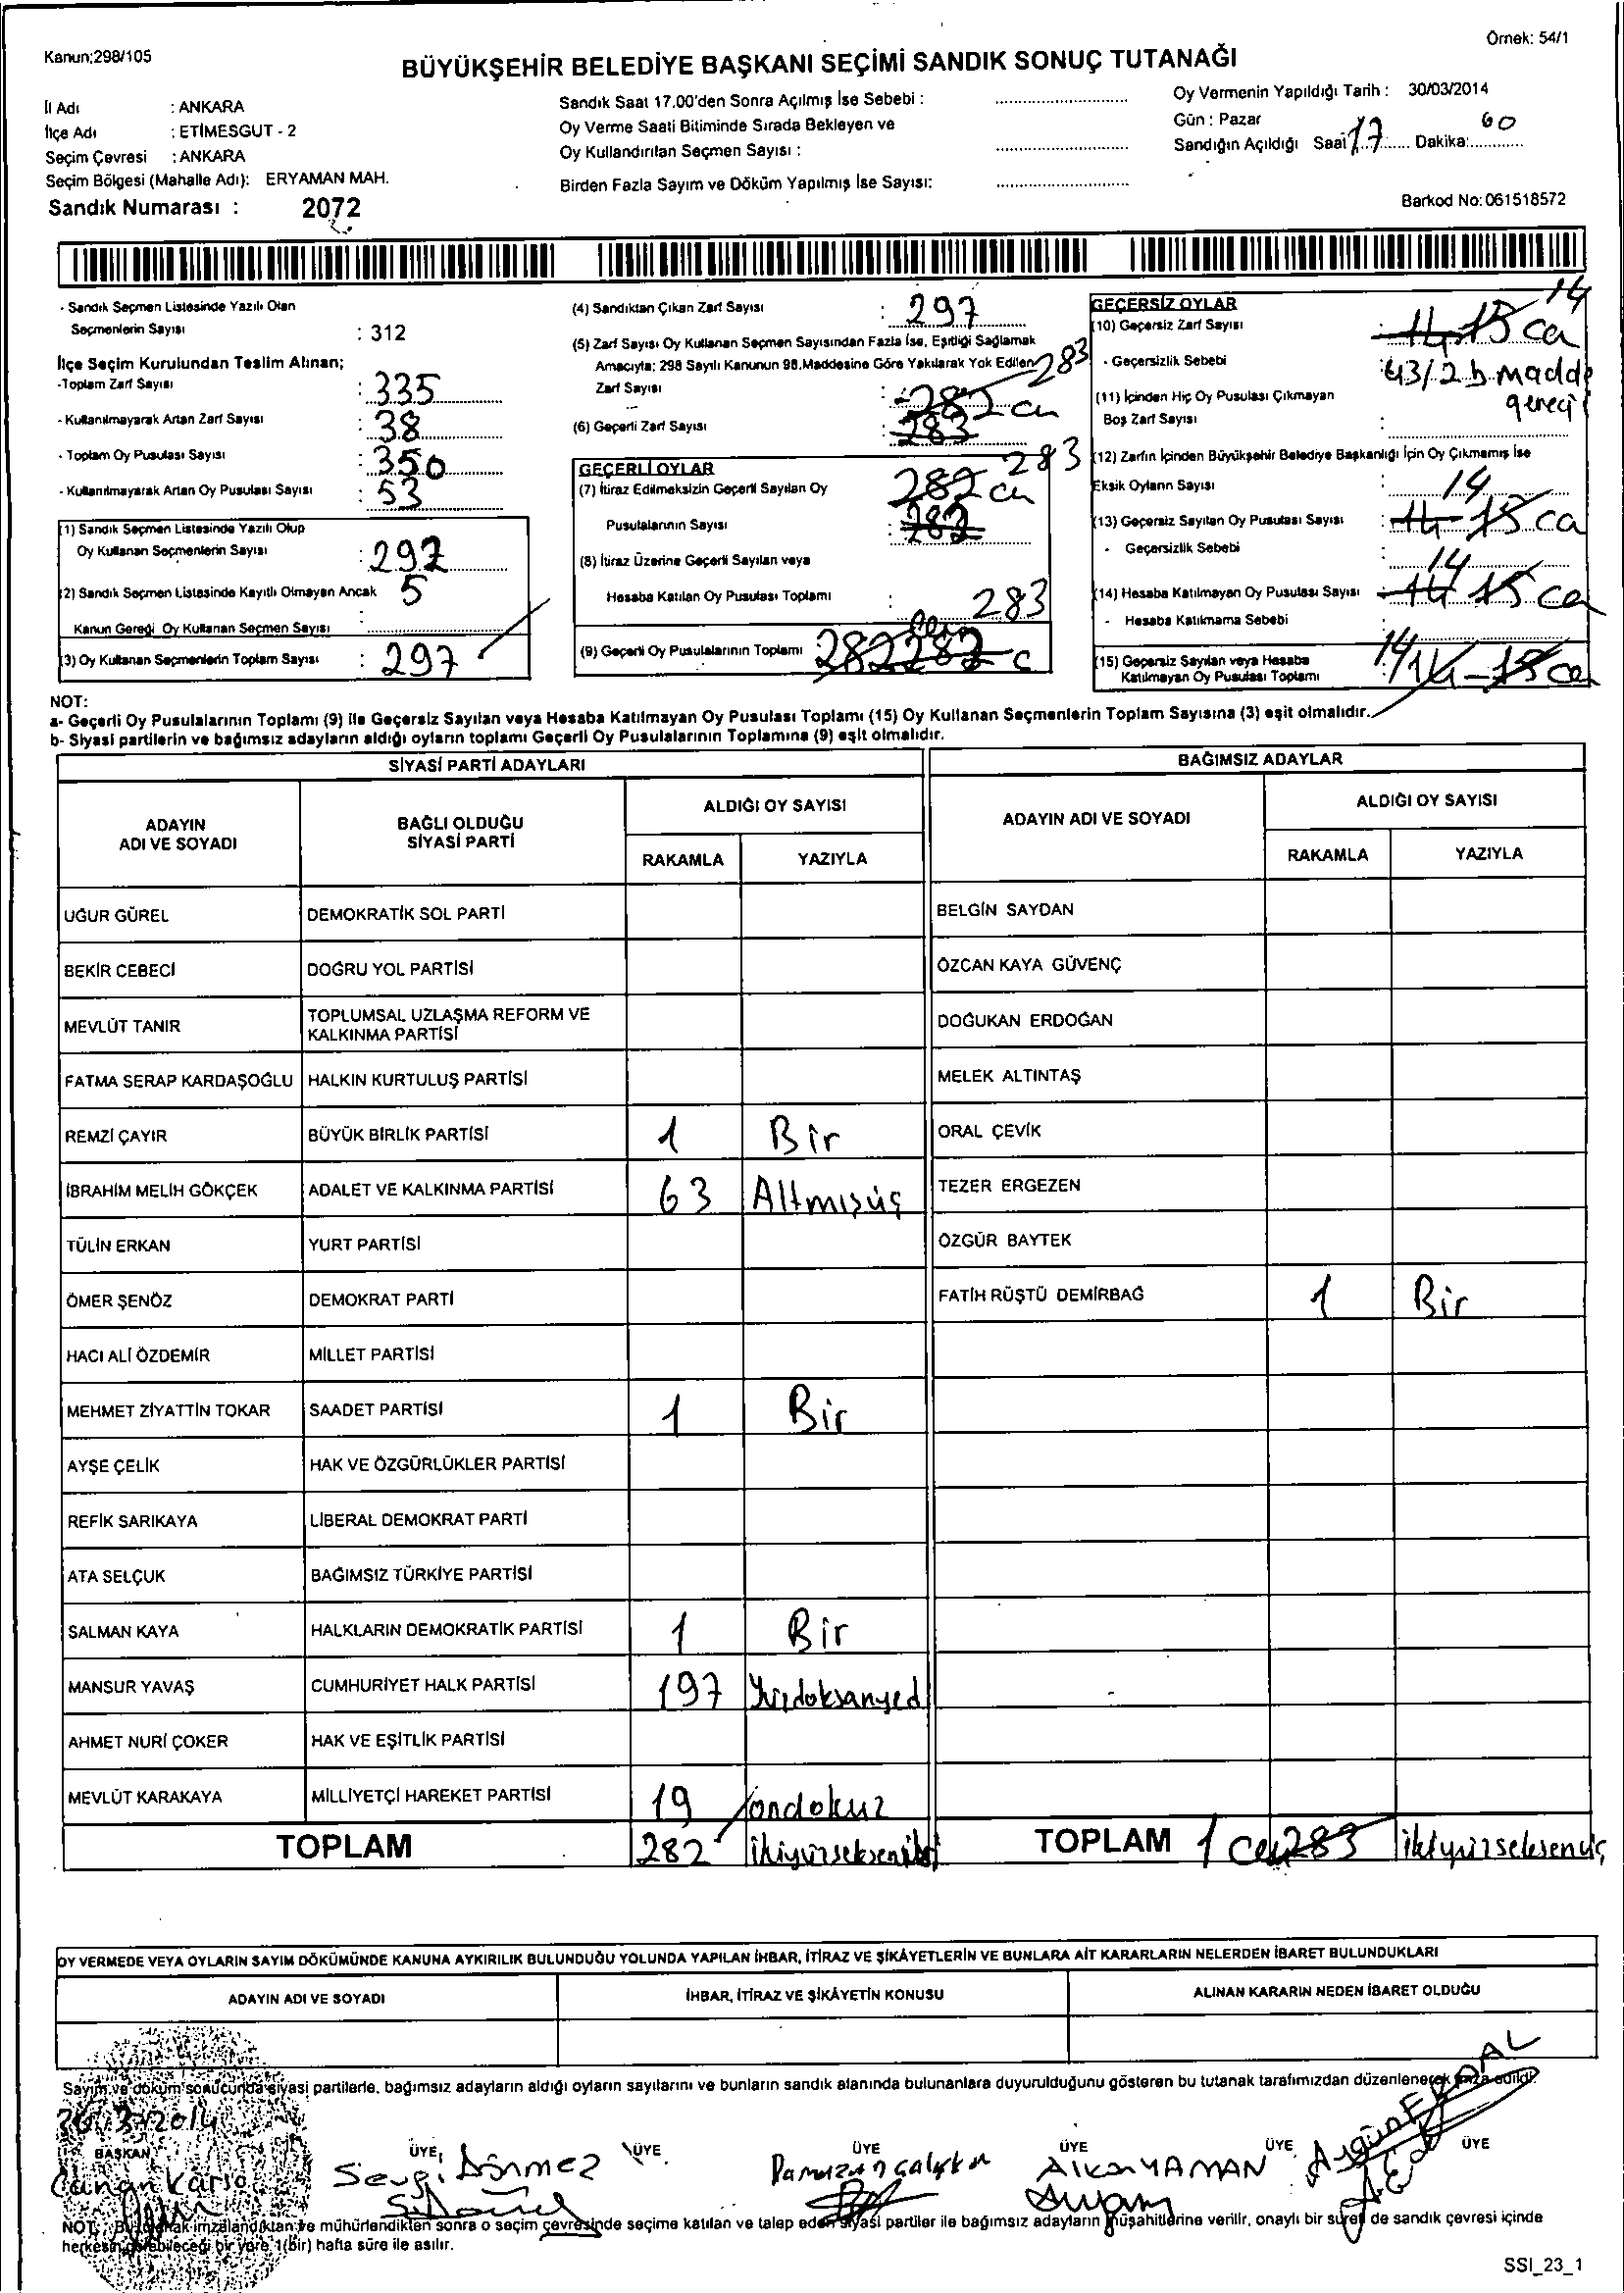 Kanun;298/105
Örnek: 54/1
BÜYÜKŞEHİR BELEDİYE BAŞKANI SEÇİMİ SANDIK SONUÇ TUTANAĞI
İl Adı : ANKARA
İlçe Adı : ETİMESGUT - 2
Seçim Çevresi : ANKARA
Seçim Bölgesi (Mahalle Adı): ERYAMAN MAH.
Sandık Numarası : 2072
Sandık Saat 17.00'den Sonra Açılmış İse Sebebi :
Oy Verme Saati Bitiminde Sırada Bekleyen ve
Oy Kullandırılan Seçmen Sayısı :
Birden Fazla Sayım ve Döküm Yapılmış İse Sayısı:
Oy Vermenin Yapıldığı Tarih : 30/03/2014
Gün : Pazar
Sandığın Açıldığı Saat 17 Dakika: 00
Barkod No: 061518572
- Sandık Seçmen Listesinde Yazılı Olan
Seçmenlerin Sayısı : 312
İlçe Seçim Kurulundan Teslim Alınan;
-Toplam Zarf Sayısı : 335
- Kullanılmayarak Artan Zarf Sayısı : 38
- Toplam Oy Pusulası Sayısı : 350
- Kullanılmayarak Artan Oy Pusulası Sayısı : 53
(1) Sandık Seçmen Listesinde Yazılı Olup
Oy Kullanan Seçmenlerin Sayısı : 292
(2) Sandık Seçmen Listesinde Kayıtlı Olmayan Ancak 5
Kanun Gereği Oy Kullanan Seçmen Sayısı :
(3) Oy Kullanan Seçmenlerin Toplam Sayısı : 297
(4) Sandıktan Çıkan Zarf Sayısı : 297
(5) Zarf Sayısı Oy Kullanan Seçmen Sayısından Fazla İse, Eşitliği Sağlamak
Amacıyla; 298 Sayılı Kanunun 98.Maddesine Göre Yakılarak Yok Edilen 283
Zarf Sayısı : 282 ca
(6) Geçerli Zarf Sayısı : 283
GEÇERLİ OYLAR 283
(7) İtiraz Edilmeksizin Geçerli Sayılan Oy 282 ca
Pusulalarının Sayısı : 282
(8) İtiraz Üzerine Geçerli Sayılan veya
Hesaba Katılan Oy Pusulası Toplamı : 283
(9) Geçerli Oy Pusulalarının Toplamı 282 282 c
GEÇERSİZ OYLAR 14
(10) Geçersiz Zarf Sayısı 14 15 ca
- Geçersizlik Sebebi : 43/2 b madde
gereği
(11) İçinden Hiç Oy Pusulası Çıkmayan
Boş Zarf Sayısı :
(12) Zarfın İçinden Büyükşehir Belediye Başkanlığı İçin Oy Çıkmamış İse
Eksik Oyların Sayısı : 14
(13) Geçersiz Sayılan Oy Pusulası Sayısı : 14 15 ca
- Geçersizlik Sebebi : 14
(14) Hesaba Katılmayan Oy Pusulası Sayısı 14 15 ca
- Hesaba Katılmama Sebebi :
(15) Geçersiz Sayılan veya Hesaba 14 14 - 15 ca
Katılmayan Oy Pusulası Toplamı
NOT:
a- Geçerli Oy Pusulalarının Toplamı (9) ile Geçersiz Sayılan veya Hesaba Katılmayan Oy Pusulası Toplamı (15) Oy Kullanan Seçmenlerin Toplam Sayısına (3) eşit olmalıdır.
b- Siyasi partilerin ve bağımsız adayların aldığı oyların toplamı Geçerli Oy Pusulalarının Toplamına (9) eşit olmalıdır.
SİYASİ PARTİ ADAYLARI
BAĞIMSIZ ADAYLAR
ADAYIN
ADI VE SOYADI
BAĞLI OLDUĞU
SİYASİ PARTİ
ALDIĞI OY SAYISI
RAKAMLA YAZIYLA
ADAYIN ADI VE SOYADI
ALDIĞI OY SAYISI
RAKAMLA YAZIYLA
UĞUR GÜREL DEMOKRATİK SOL PARTİ BELGİN SAYDAN
BEKİR CEBECİ DOĞRU YOL PARTİSİ ÖZCAN KAYA GÜVENÇ
MEVLÜT TANIR TOPLUMSAL UZLAŞMA REFORM VE
KALKINMA PARTİSİ DOĞUKAN ERDOĞAN
FATMA SERAP KARDAŞOĞLU HALKIN KURTULUŞ PARTİSİ MELEK ALTINTAŞ
REMZİ ÇAYIR BÜYÜK BİRLİK PARTİSİ 1 Bir ORAL ÇEVİK
İBRAHİM MELİH GÖKÇEK ADALET VE KALKINMA PARTİSİ 63 Altmışüç TEZER ERGEZEN
TÜLİN ERKAN YURT PARTİSİ ÖZGÜR BAYTEK
ÖMER ŞENÖZ DEMOKRAT PARTİ FATİH RÜŞTÜ DEMİRBAĞ 1 Bir
HACI ALİ ÖZDEMİR MİLLET PARTİSİ
MEHMET ZİYATTİN TOKAR SAADET PARTİSİ 1 Bir
AYŞE ÇELİK HAK VE ÖZGÜRLÜKLER PARTİSİ
REFİK SARIKAYA LİBERAL DEMOKRAT PARTİ
ATA SELÇUK BAĞIMSIZ TÜRKİYE PARTİSİ
SALMAN KAYA HALKLARIN DEMOKRATİK PARTİSİ 1 Bir
MANSUR YAVAŞ CUMHURİYET HALK PARTİSİ 197 Yüzdoksanyedi
AHMET NURİ ÇOKER HAK VE EŞİTLİK PARTİSİ
MEVLÜT KARAKAYA MİLLİYETÇİ HAREKET PARTİSİ 19 ondokuz
TOPLAM 282 ikiyüzsekseniki TOPLAM 1 ca 283 ikiyüzseksenüç
OY VERMEDE VEYA OYLARIN SAYIM DÖKÜMÜNDE KANUNA AYKIRILIK BULUNDUĞU YOLUNDA YAPILAN İHBAR, İTİRAZ VE ŞİKÂYETLERİN VE BUNLARA AİT KARARLARIN NELERDEN İBARET BULUNDUKLARI
ADAYIN ADI VE SOYADI İHBAR, İTİRAZ VE ŞİKÂYETİN KONUSU ALINAN KARARIN NEDEN İBARET OLDUĞU
Sayım ve döküm sonucunda siyasi partilerle, bağımsız adayların aldığı oyların sayılarını ve bunların sandık alanında bulunanlara duyurulduğunu gösteren bu tutanak tarafımızdan düzenlenerek imza edildi.
BAŞKAN ÜYE ÜYE ÜYE ÜYE ÜYE ÜYE
Sevgi Dönmez Ramazan Çalışkan Alkan YAMAN Aygün ERDAL
NOT: Bu tutanak imzalandıktan ve mühürlendikten sonra o seçim çevresinde seçime katılan ve talep eden siyasi partiler ile bağımsız adayların müşahitlerine verilir, onaylı bir sureti de sandık çevresi içinde
herkesin görebileceği bir yere 1(bir) hafta süre ile asılır.
SSI_23_1